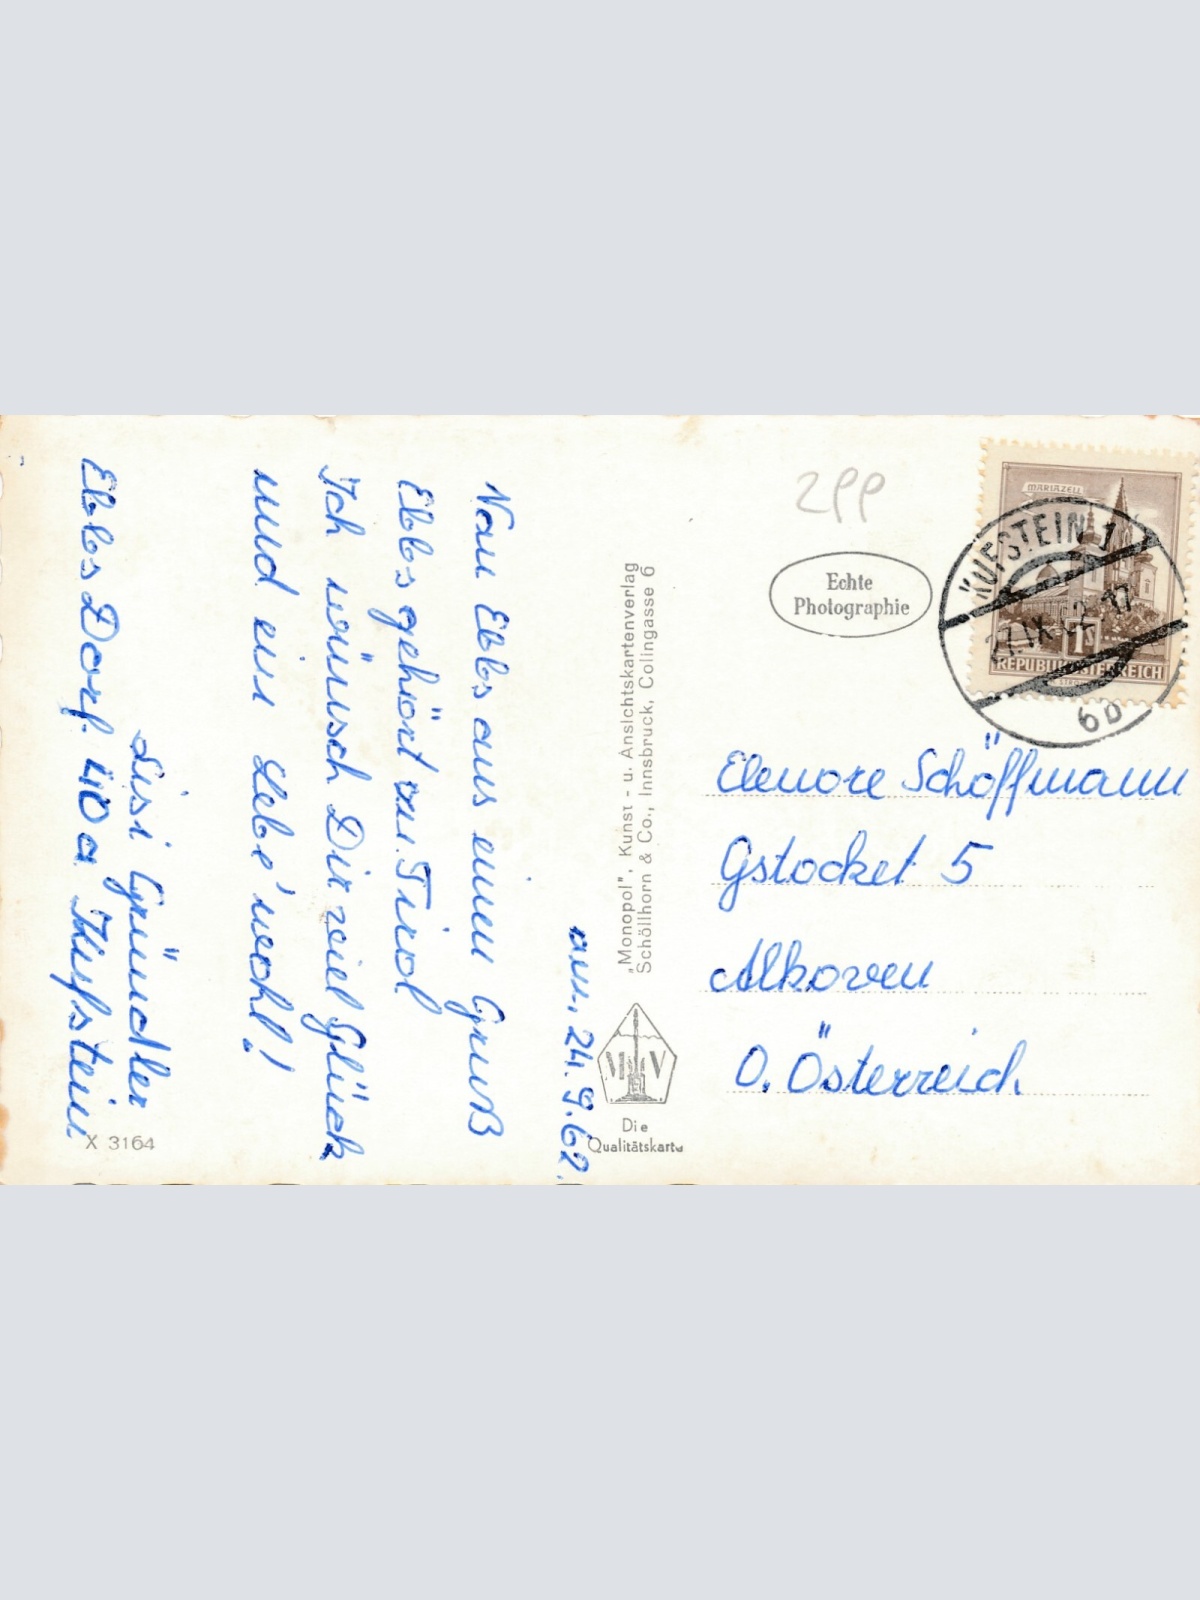 am. 24.9.62.
Von Ebbs aus einen Gruß
Ebbs gehört zu. Tirol
Ich wünsch Dir viel Glück
und ein Lebe'wohl!
Lisi Gründler
Ebbs Dorf. 40a Kufstein
X 3164
„Monopol", Kunst - u. Ansichtskartenverlag
Schöllhorn & Co., Innsbruck, Colingasse 6
M V
Die
Qualitätskarte
Echte
Photographie
MARIAZELL
1s
REPUBLIK ÖSTERREICH
KUFSTEIN 1
6b
Elenore Schöffmann
Gstocket 5
Alkoven
O. Österreich.